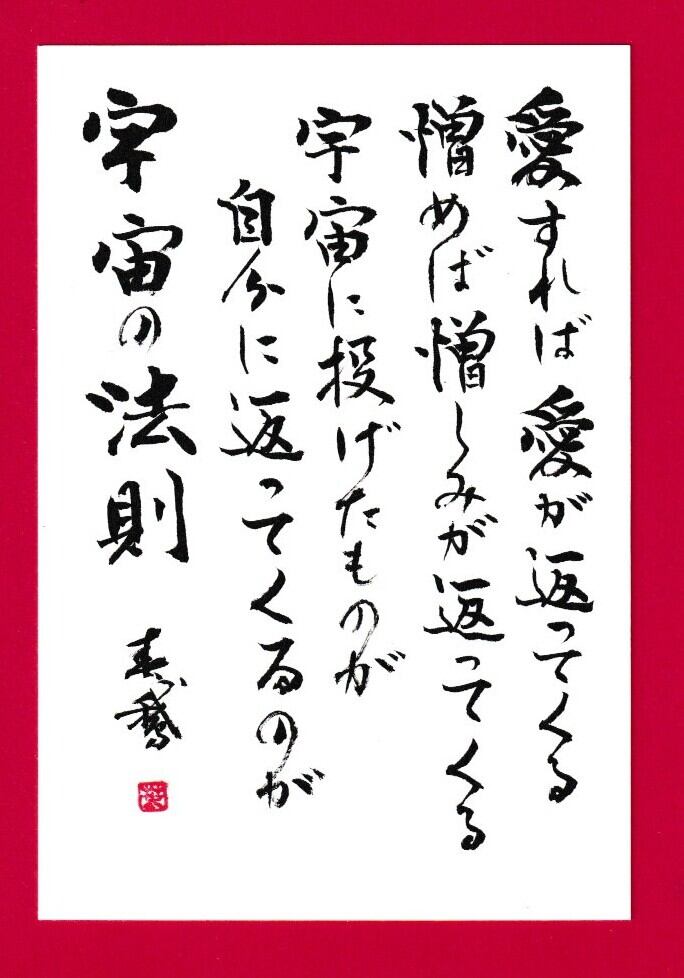 愛すれば愛が返ってくる
憎めば憎しみが返ってくる
宇宙に投げたものが
自分に返ってくるのが
宇宙の法則